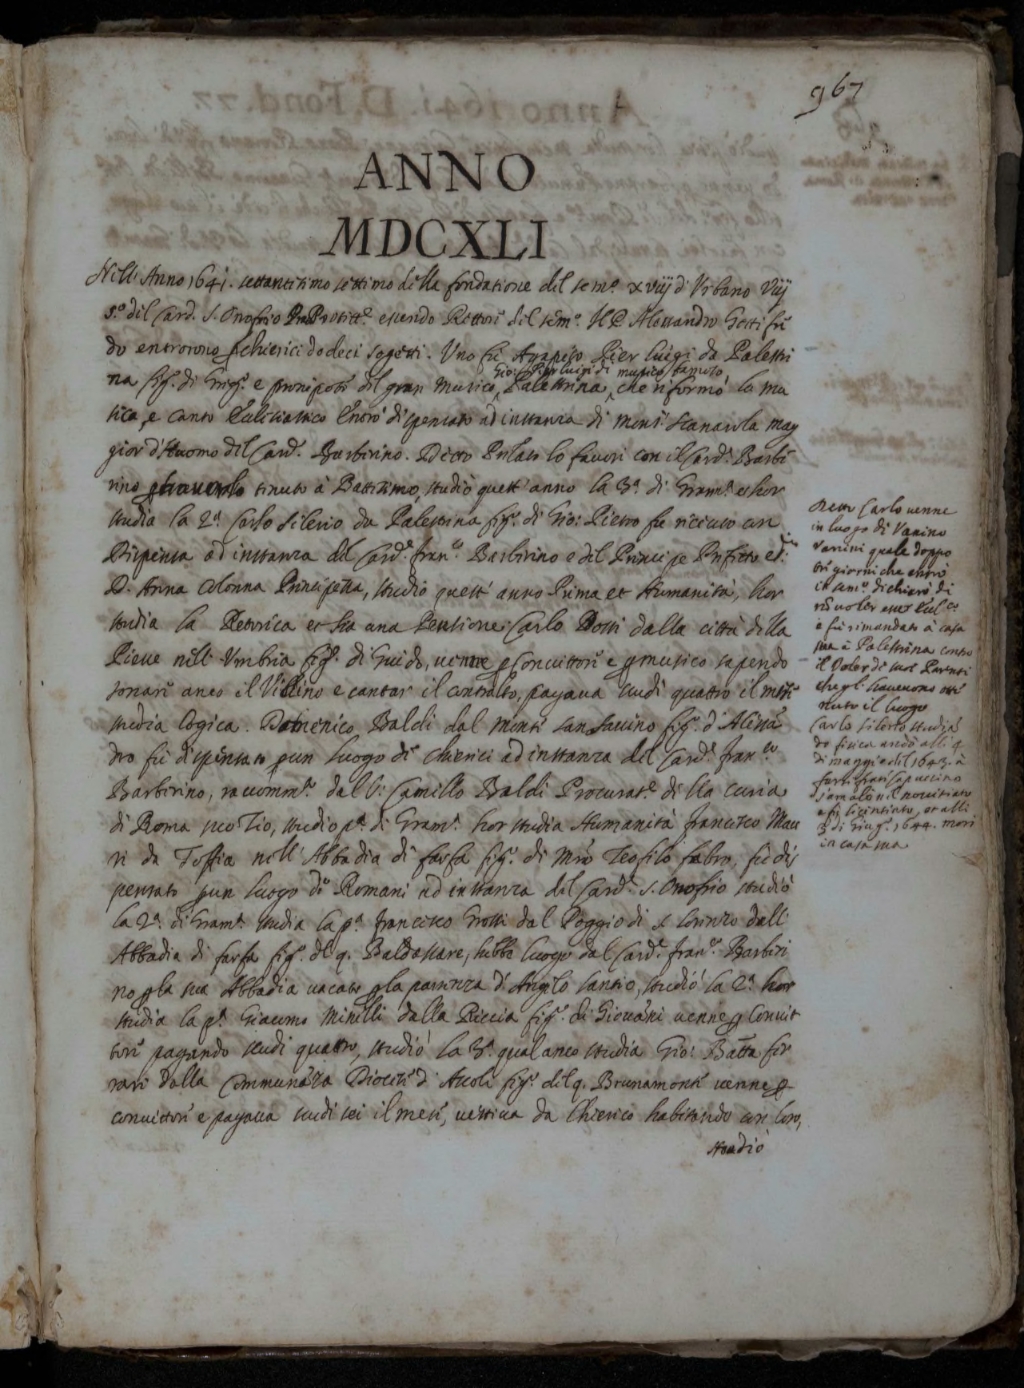 967
ANNO
MDCXLI
Nell' Anno 1641. settantesimo settimo della fondatione del sem.º xviij d' Urbano Viij
S.º del Card. S. Onofrio Protett.e essendo Rettore del sem.º Il P. Alessandro Gotti fu
do entrorono chierici dodeci sogetti. Uno fu Agapito Pier luigi da Palestri
Gio: Pier luigi di musico famoso
na fig. di Greg.º e pronipote del gran Musico Palestrina, che riformò la mu
sica, e canto Eccl.siastico Entrò dispensato ad instanza di mons.r Scanarola mag
gior d'Huomo del Card. Barberino. Detto Prelato lo favorì con il Card. Barbe
rino haverlo tenuto à Battesimo, studiò quest' anno la 3.ª di Gram.ª et hor
studia la 2.ª Carlo Silerio da Palestrina fig. di Gio: Pietro fu ricevuto con
Dispensa ad instanza del Card.e Fran.º Barberino e del Principe Prefetto et
D. Anna Colonna Principessa, studiò quest' anno Prima et Humanità, hor
studia la Retorica et ha una Pensione. Carlo Dotti dalla città della
Pieve nell' Umbria fig. di Guido, venne Convittore e musico sapendo
sonare anco il Violino e cantar il contralto, pagava scudi quattro il mese
studia logica. Domenico Baldi dal monte San Savino fig. d' Alessā
dro fu dispensato un luogo di chierici ad instanza del Card. Fran.co
Barberino, raccomm.to dal S.r Camillo Baldi Procurat.e della Curia
di Roma suo Tio, studiò p.ª di Gram.ª hor studia Humanità Francesco Mau
ri da Toffia nell' Abbadia di farfa fig. di Mrō Teofilo fabro, fu dis
pensato un luogo di Romani ad instanza del Card.e S. Onofrio studiò
la 2.ª di Gram.ª studia la p.ª Francesco Grotti dal Poggio di S. Lorenzo dell'
Abbadia di farfa fig. del q. Baldassare, hebbe luogo dal Card.e Fran.co Barberi
no la sua Abbadia vacato la partenza d' Angelo Santio, studiò la 2.ª hor
studia la p.ª Giacomo Minelli dalla Riccia fig. di Giovāni venne Convit
tore pagando scudi quattro, studiò la 3.ª qual anco studia Gio: Batta fer
rari dalla Communāza Diocesi d' Ascoli fig. del q. Brunamonte venne
convittore e pagava scudi sei il mese, vestiva da Chierico habitando con loro,
studiò
Detto Carlo venne
in luogo di Vanino
Vanini quale doppo
tre giorni che entrò
in sem.º dichiarò di
nō voler esser Eccl.co
e fu rimandato à casa
sua à Palestrina contro
il Voler de suoi Parenti
che gl' havevono otte
nuto il luogo
Carlo Silerio studiā
do fisica andò alli 9.
di maggio del 1643. à
farsi frate Capucino
s'amalò nel novitiato
e fu licentiato, et alli
3 di Giug.º 1644. morì
in casa sua